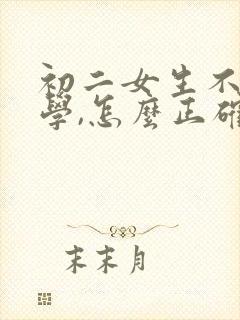 初二女生不
學,怎麼正確
末末月